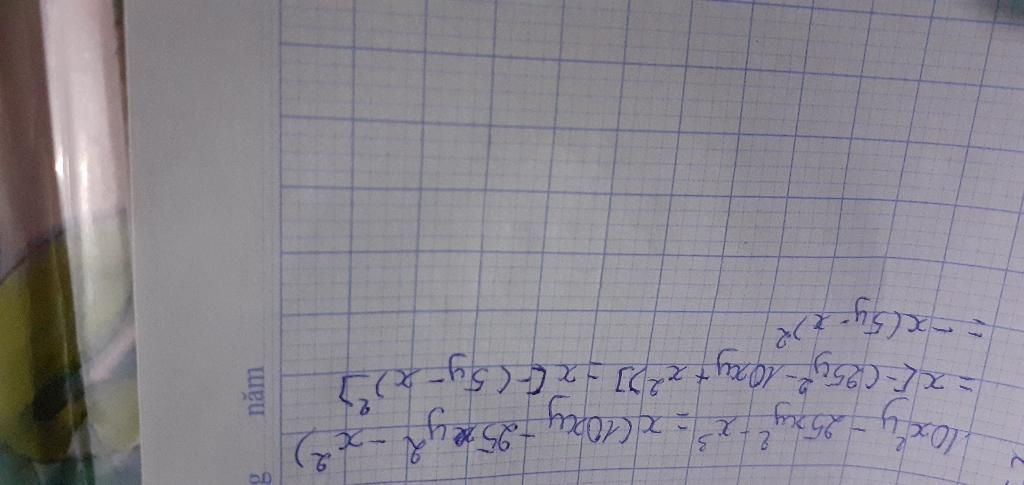 10x²y - 25xy² - x³ = x(10xy - 25y² - x²)
= x[-(25y² - 10xy + x²)] = x[-(5y - x)²]
= -x(5y - x)²
năm
g